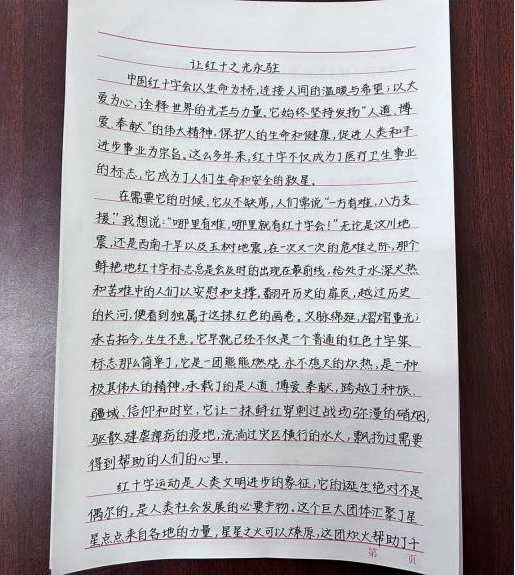 让红十之光永驻
中国红十字会以生命为桥,连接人间的温暖与希望;以大
爱为心,诠释世界的光芒与力量。它始终坚持发扬“人道、博
爱、奉献”的伟大精神,保护人的生命和健康,促进人类和平
进步事业为宗旨。这么多年来,红十字不仅成为了医疗卫生事业
的标志,它成为了人们生命和安全的救星。
在需要它的时候,它从不缺席,人们常说“一方有难,八方支
援”。我想说:“哪里有难,哪里就有红十字会!”无论是汶川地
震,还是西南干旱以及玉树地震,在一次又一次的危难之际,那个
鲜艳地红十字标志总是会及时的出现在最前线,给处于水深火热
和苦难中的人们以安慰和支撑。翻开历史的扉页,越过历史
的长河,便看到独属于这抹红色的画卷。文脉绵延,熠熠重光;
承古拓今,生生不息。它早就已经不仅是一个普通的红色十字架
标志那么简单了,它是一团熊熊燃烧,永不熄灭的炽热,是一种
极其伟大的精神,承载了的是人道、博爱、奉献,跨越了种族、
疆域、信仰和时空,它让一抹鲜红穿刺过战场弥漫的硝烟,
驱散肆虐的疫地,流淌过灾区横行的水火,飘扬过需要
得到帮助的人们的心里。
红十字运动是人类文明进步的象征,它的诞生绝对不是
偶尔的,是人类社会发展的必要产物。这个巨大团体汇聚了星
星点点来自各地的力量,星星之火可以燎原,这团炽火帮助了千
第 页